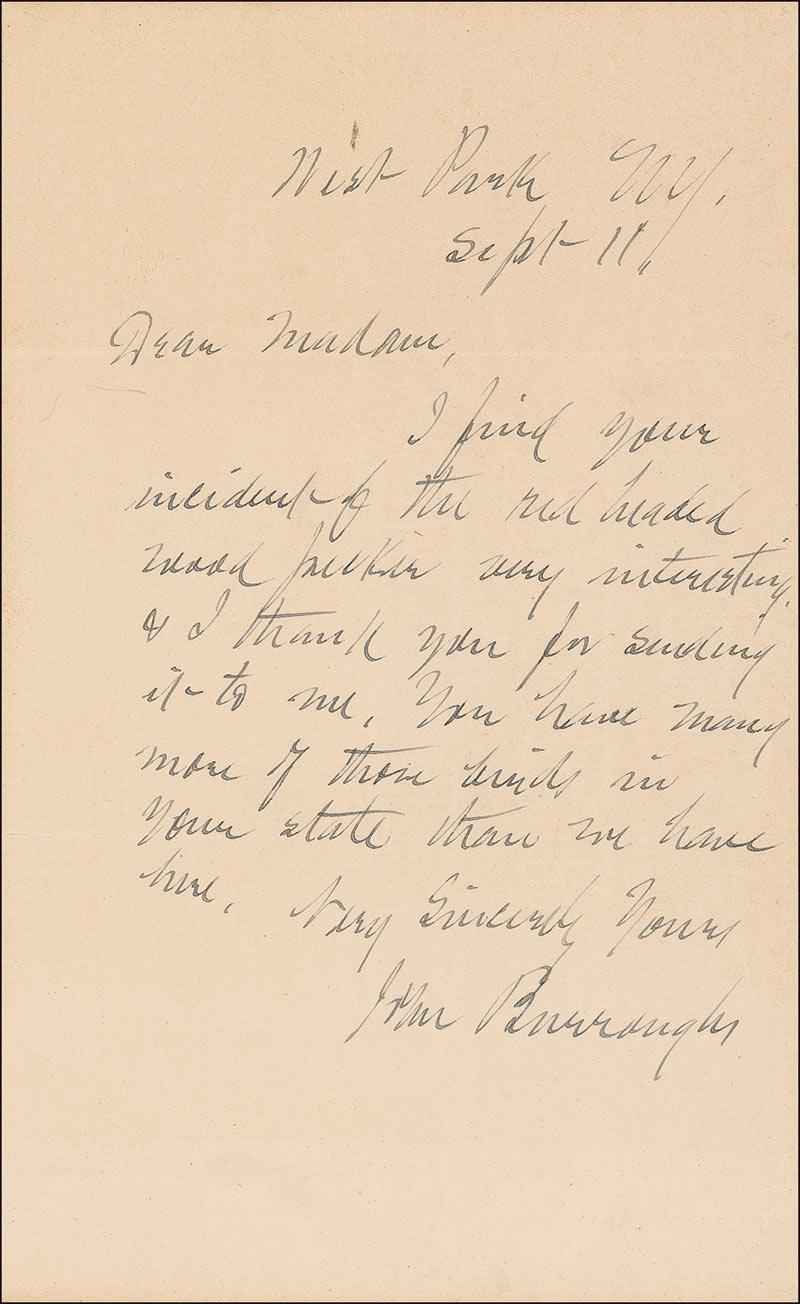 West Park NY.
Sept 11,
Dear Madam,
I find your
incident of the red headed
wood pecker very interesting.
& I thank you for sending
it to me. You have many
more of those birds in
your state than we have
here. Very Sincerely Yours
John Burroughs